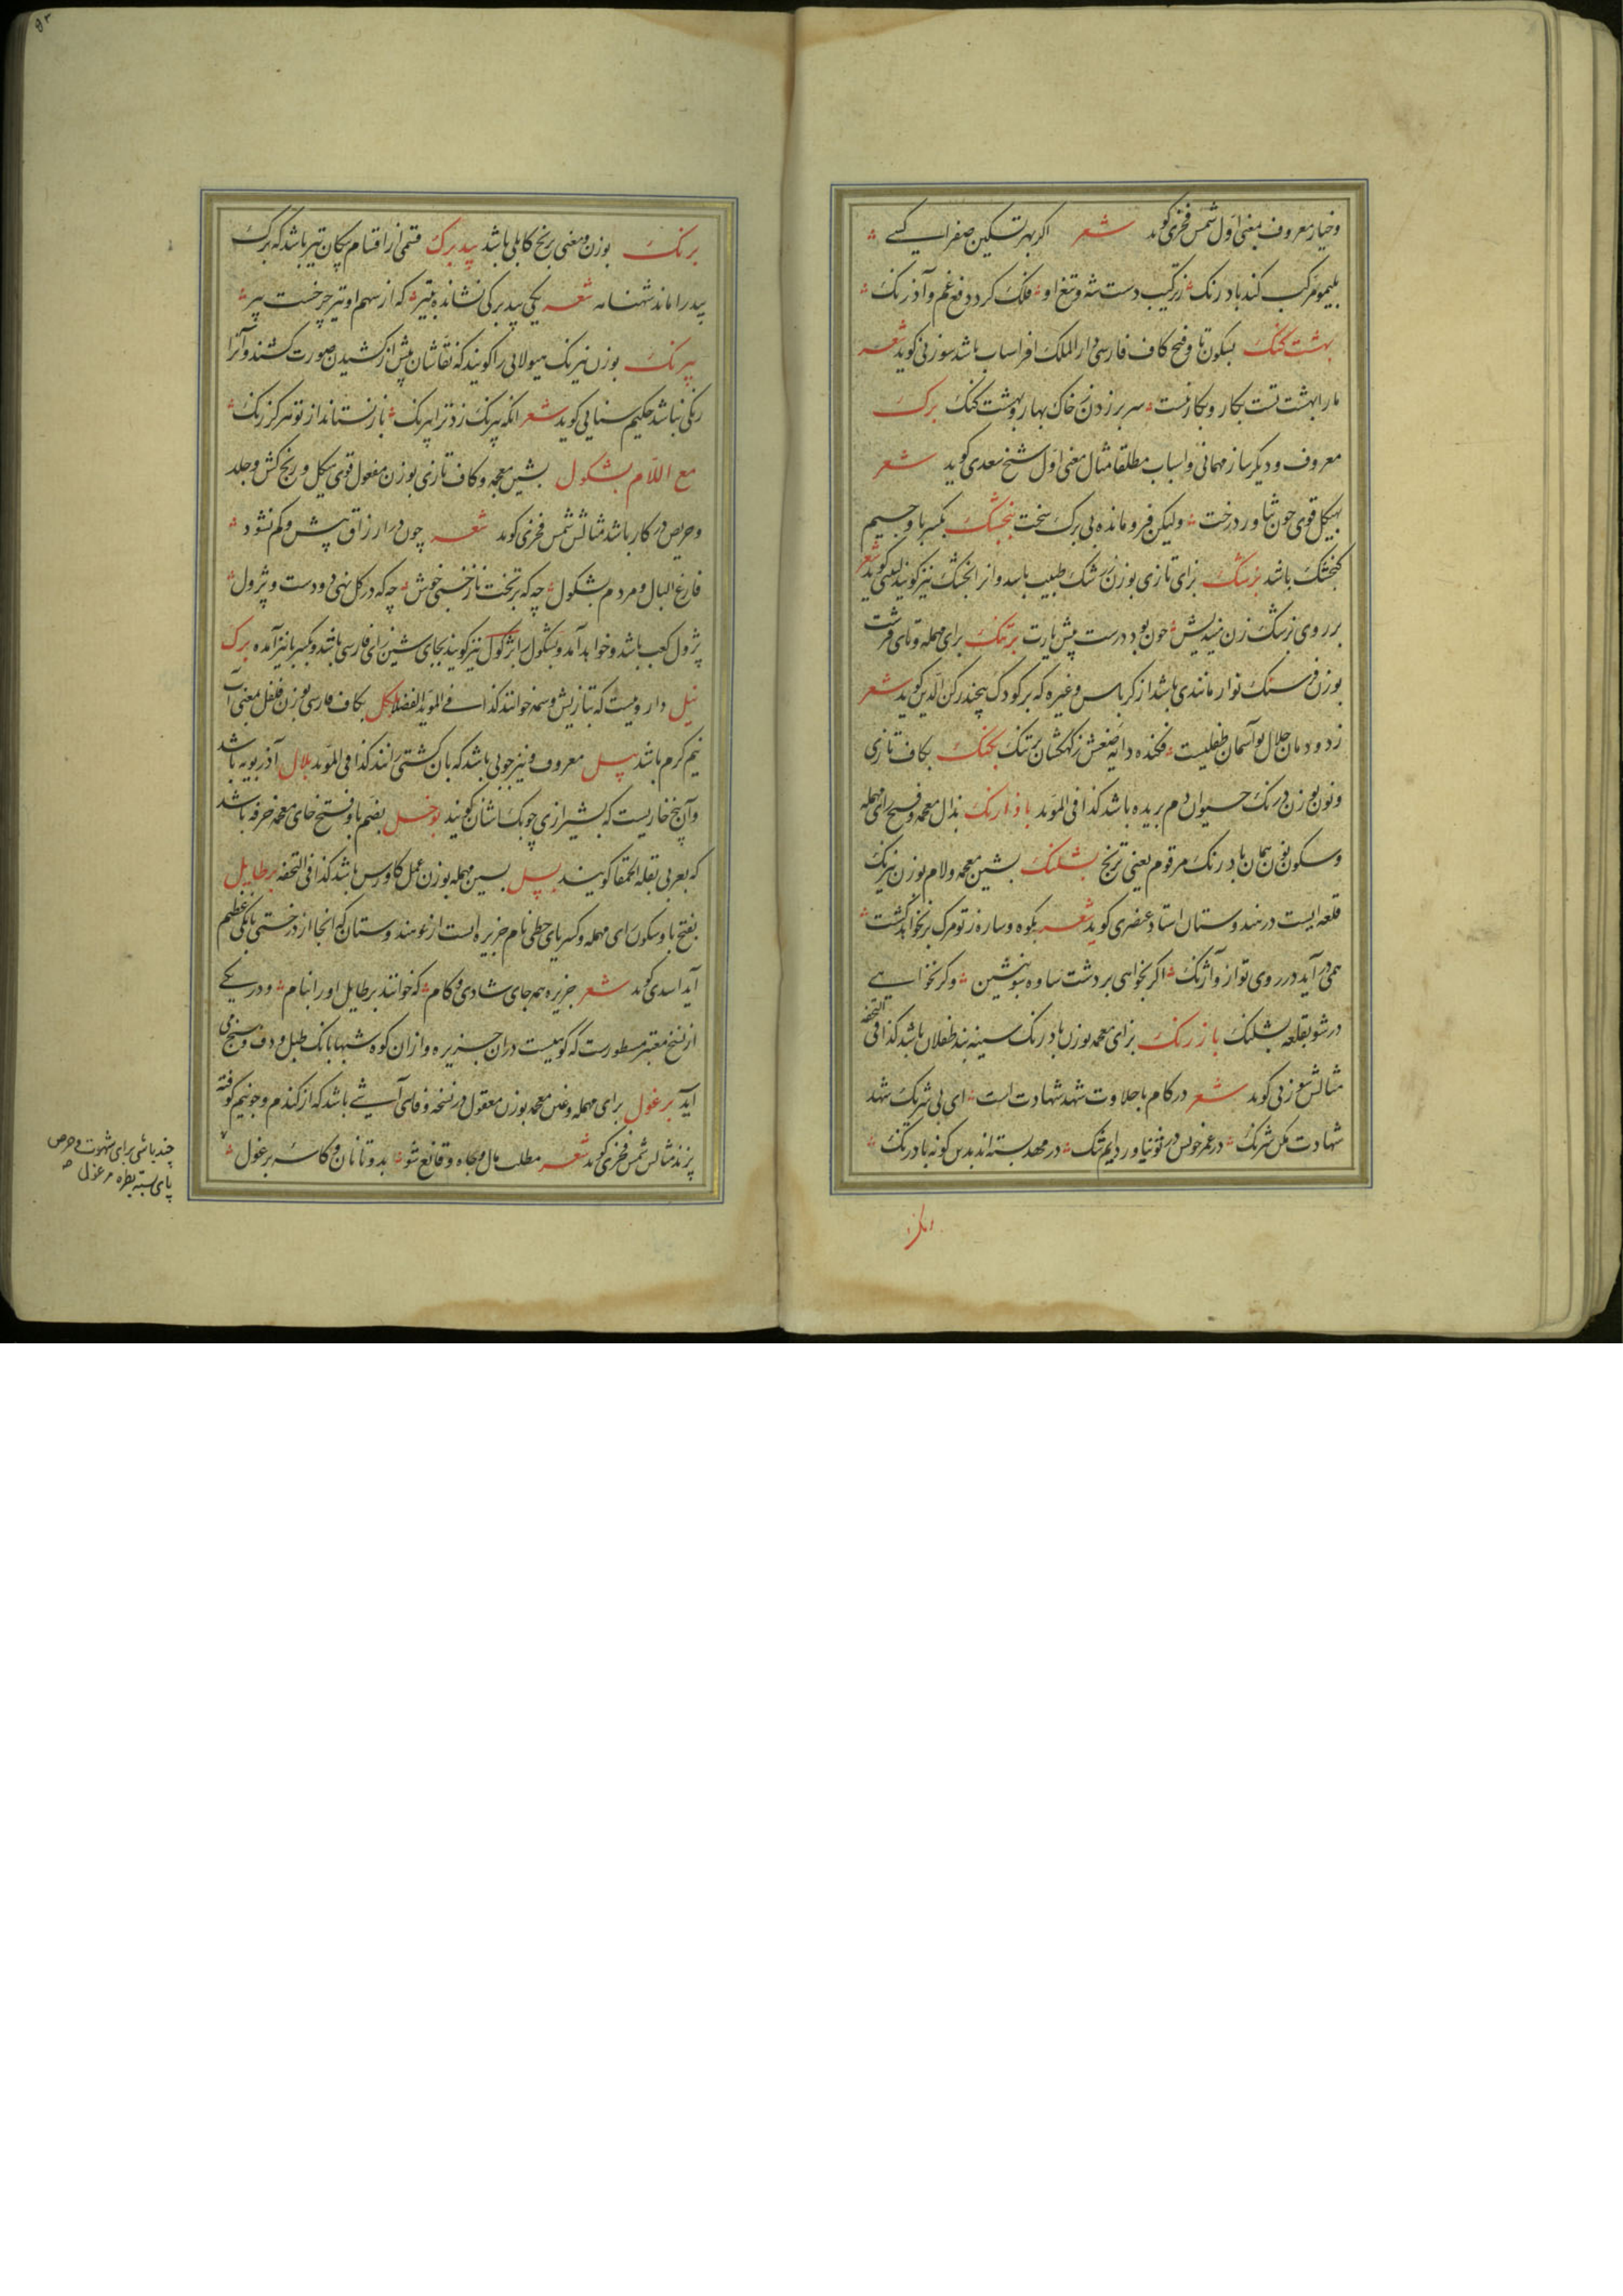 وخیار معروف بمعنی اول شمس فخری کوید شعر اکر بهر تسکین صفرا کسی
بلیمو مرکب کند بادرنک ز ترکیب دست شه و تیغ او فلک کرد دفع غم و آذرنک
بهشت کنک بسکون تا و فتح کاف فارسی دار الملک افراسیاب باشد سوزنی کوید شعر
مارا بهشت تست بکار و بکار نیست سر برزدن ز خاک بهار و بهشت کنک برک
معروف و دیکر ساز مهمانی و اسباب مطلقا مثال معنی اول شیخ سعدی کوید شعر
بهیکل قوی چون تناور درخت ولیکن فرومانده بی برک سخت بنجشک بکسر با و جیم
کنجشک باشد بزشک بزای تازی بوزن سرشک طبیب باشد وانرا بجشک نیز کویند لبیبی کوید شعر
بر روی بزشک زن میندیش چون بود درست پیشیارت برتنک برای مهمله و تای قرشت
بوزن فرسنک نوار مانندی باشد از کرباس و غیره که بر کودک پیچند رکن الدین کوید شعر
ز دودمان جلال تو آسمان طفلیست فکنده دایه صنعش ز کهکشان برتنک بکنک بکاف تازی
ونون بوزن درنک حیوان دم بریده باشد کذا فی المؤید باذارنک بذال معجمه و فتح رای مهمله
وسکون نون همان بادرنک مرقوم یعنی ترنج بشلنک بشین معجمه ولام بوزن نیرنک
قلعه ایست در هندوستان استاد عنصری کوید شعر بکوه وساره ز تو مرک برنخواهد کشت
همی در آید در روی تو از و آژنک اکر بخواهی بر دشت ساوه بنشین وکر بخواهی
درشو بقلعه بشلنک بازرنک بزای معجمه بوزن بادرنک سینه بند طفلان باشد کذا فی التحفه
مثالش سوزنی کوید شعر در کام با حلاوت شهد شهادت است ای بی شرنک شهد
شهادت مکن شرنک در عمر خویش در فتنیاوردایم تنک در مهد بسته اند بدین کونه بادرنک
برنک بوزن ومعنی برنج کابلی باشد بید برک قسمی از اقسام پیکان تیر باشد که برک
بید را ماند شهنامه شعر یکی بید برکی نشانده بتیر که از سهم او تیر چرخست پیر
بیرنک بوزن نیرنک هیولایی را کویند که نقاشان پیش از کشیدن صورت کشند و آنرا
رنکی نباشد حکیم سنایی کوید شعر انکه بیرنک زد ترا بیرنک باز نستاند از تو هرکز رنک
مع اللام بشکول بشین معجمه وکاف تازی بوزن مفعول قوی هیکل و رنج کش و جلد
وحریص در کار باشد مثالش شمس فخری کوید شعر چون در ارزاق بیش و کم نشود
فارغ البال و مردم بشکول چه که بر تخت ناز خسبی خوش چه که در کل نهی دو دست و پژول
پژول کعب باشد و خواهد آمد و بشکول را بژکول نیز کویند بجای شین زای فارسی باشد و بکسر با نیز آمده برک
نیل دارویست که بتازیش وسمه خوانند کذا فی المؤید الفضلا بکل بکاف فارسی بوزن فلفل بمعنی آب
نیم کرم باشد بیل معروف و نیز چوبی باشد که بان کشتی رانند کذا فی المؤید بلال آذربویه باشد
وآن بیخ خاریست که بشیرازی چوبک اشنان کویند بوخل بضم با و فتح خای معجمه خرفه باشد
که بعربی بقلة الحمقا کویند بسل بسین مهمله بوزن عمل کاورس باشد کذا فی التحفه برطایل
بفتح با وسکون رای مهمله وکسر یای حطی نام جزیره ایست از هندوستان که انجا از درختی بانکی عظیم
آید اسدی کوید شعر جزیره همه جای شادی و کام که خوانند برطایل او را بنام و در یکی
از نسخ معتبر مسطورست که کوهیست در ان جزیره و ازان کوه شبها بانک طبل و دف وسنج می
آید برغول برای مهمله وغین معجمه بوزن معقول در نسخه وفایی آشی باشد که از کندم و جو نیم کوفته
پزند مثالش شمس فخری کوید شعر مطلب مال و جاه و قانع شو بدو تا نان و کاسه برغول
چند باشی برای شهوت و حرص
پای بسته مرغول